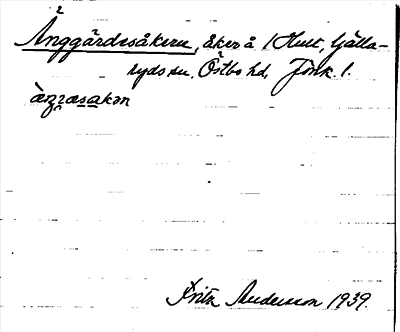 Änggärdesåkern, åker å 1 Hult, Gjälla-
ryds sn, Östbo hd, Jönk. l.
Fritz Andersson 1939.